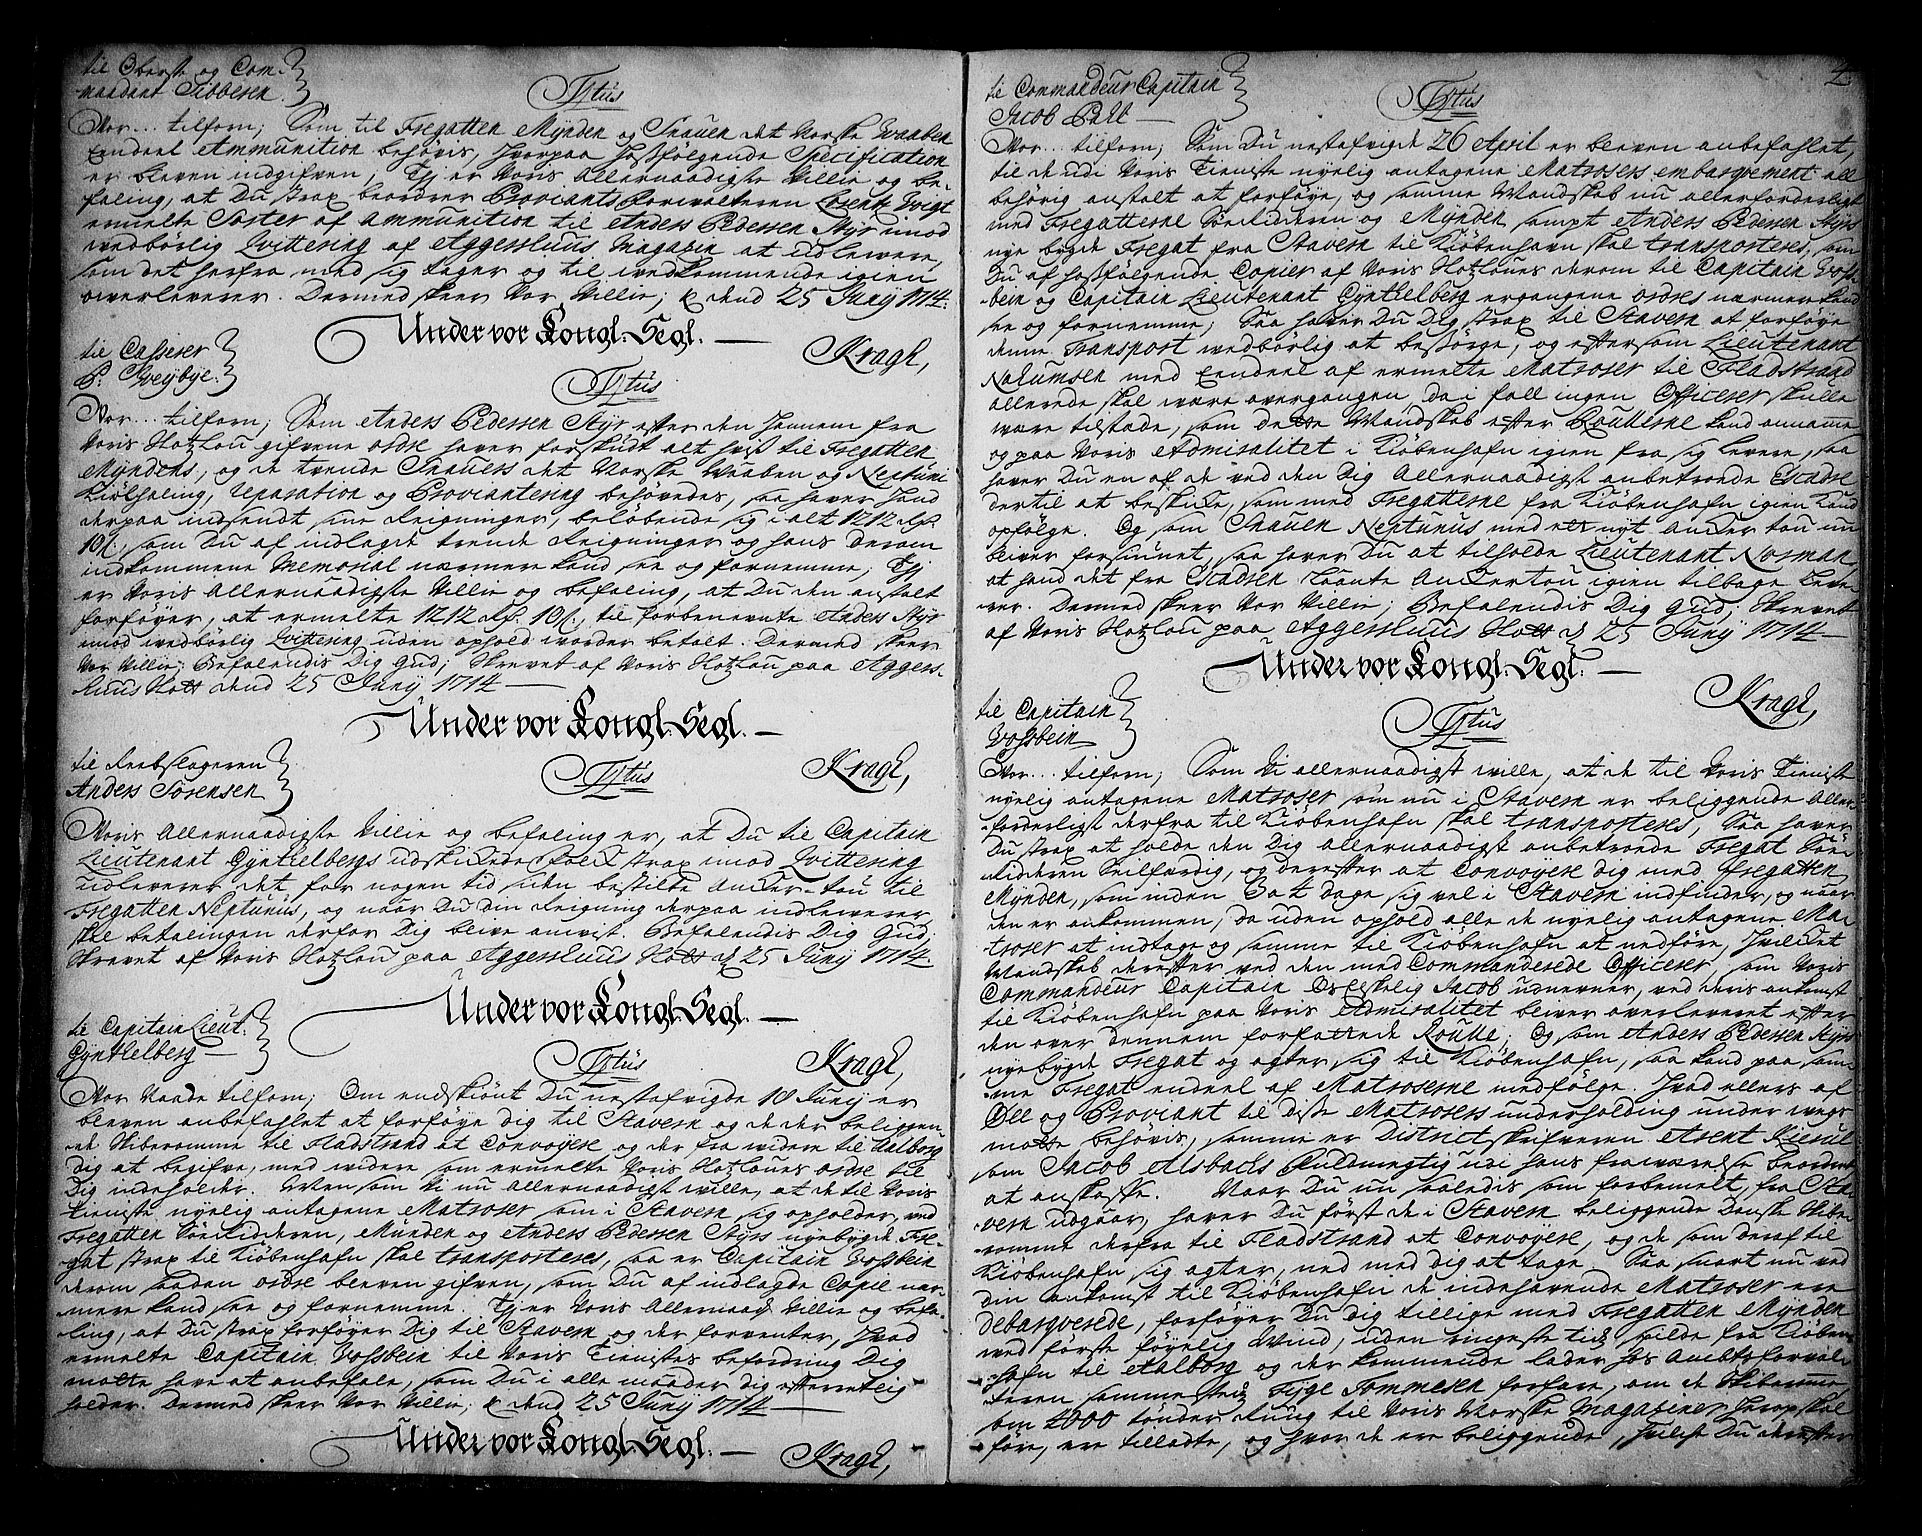 til Oberste og Com-
mandant Sibbesen.
Tÿtus
Vor... tilforn; Som til Fregatten Mynden og Snauen det Norske Waaben
Eendeel Ammunition behøvis, hvorpaa hosfølgende Specification
er bleven indgifven, Thj er Voris Allernaadigste Villie og be-
faling, at Du strax beordrer Proviantsforvalteren Lorentz Vigt
ermelte Sorter af Ammunition til Anders Pedersen Styr imod
vedbörlig Qvittering af Aggershuus Magazin at udlevere,
som det herfra med sig tager og til vedkommende igien
overleverer. Dermed skeer Vor Villie; &c. dend 25 Junÿ 1714.
Under vor Kongl. Segl.
Kragh,
til Casserer
P. Sveybye.
Tÿtus
Vor... tilforn; Som Anders Pedersen Styr efter den hannem fra
Voris Slotzlou gifvene ordre haver forskudt alt hvis til Fregatten
Myndens, og de tvende Snauers det Norske Waaben og Neptuni
Kiölhaling, reparation og Proviantering behøvedes, saa haver hand
derpaa indsendt sine Reigninger, beløbende sig i alt 1212 Rdr.
10 s., som Du af indlagde tvende Reigninger og hans derom
indkommene Memorial nærmere kand see og fornemme; Thj
er Voris Allernaadigste Villie og befaling, at Du den anstalt
forföyer, at ermelte 1212 Rdr. 10 s., til forbenevnte Anders Styr
imod vedbörlig Qvittering uden ophold vorder betalt. Dermed skeer
Vor Villie; Befalendis Dig Gud; Skrevet af Voris Slotzlou paa Aggers-
huus Slott dend 25 Junÿ 1714
Under vor Kongl. Segl.
Kragh,
til Reebslageren
Anders Sörensen
Tÿtus
Voris Allernaadigste Villie og befaling er, at Du til Capitain
Lieutenant Gÿntelbergs udskickede folck strax imod Qvittering
udleverer det for nogen tid siden bestilte Ancker-tou til
Fregatten Neptunus, og naar Du din Reigning derpaa indleverer,
skal betalingen derfor Dig blive anvist. Befalendis Dig Gud;
Skrevet af Voris Slotzlou paa Aggershuus Slott d. 25 Junÿ 1714.
Under vor Kongl. Segl.
Kragh,
til Capitain Lieut.
Gÿntelberg
Tÿtus
Vor Naade tilforn; Om endskiönt Du nestafvigte 10 Junÿ er
bleven anbefahlet at forföye dig til Stavern og de der beliggen-
de Skiberomme til Fladstrand at Convoÿere og der fra videre til Aalborg
Dig at begifve, med videre som ermelte Voris Slotzloues ordre til
Dig indeholder. Men som Vi nu allernaadigst ville, at de til Voris
tieniste nyelig antagene Matroser som i Stavern sig opholder, ved
Fregatten Söeridderen, Mÿnden og Anders Pedersen Styrs nyebygde Fre-
gat strax til Kiöbenhafn skal transporteres, saa er Capitain Vosbein
derom saadan ordre bleven gifven, som Du af indlagde Copie nær-
mere kand see og fornemme. Thj er Voris Allernaad. Villie og befa-
ling, at Du strax forföyer Dig til Stavern og der forventer, hvad
ermelte Capitain Vosbein til Voris Tienistes befordring Dig
motte have at anbefale, som Du i alle maader dig efterretlig
holder. Dermed skeer Vor Villie; &c. dend 25 Junÿ 1714
Under vor Kongl. Segl.
Kragh,
2.
til Commandeur Capitain
Jacob
Tÿtus
Vor... tilforn; Som Du nestafvigte 26 April er bleven anbefahlet,
til de udi Voris Tieniste nyelig antagene Matrosers embarqvement all
behörig anstalt at forföye, og samme Mandskab nu allerforderligst
med Fregatterne Söeridderen og Mynden sampt Anders Pedersen Styrs
nye bygde Fregat fra Stavern til Kiöbenhavn skal transporteres, som
Du af hosfølgende Copier af Voris Slotzloues derom til Capitain Vos-
bein og Capitain Lieutenant Gÿntelberg ergangene ordres nærmere kand
see og fornemme; Saa haver Du Dig strax til Stavern at forföye
denne Transport vedbörlig at besörge, og eftersom Lieutenant
med Eendeel af ermelte Matroser til Fladstrand
allerede skal være overgangen, da i fall ingen Officerer skulle
være tilstæde, som dette Mandskab efter Roullerne kand annamme
og paa Voris Admiralitet i Kiöbenhafn igien fra sig levere, saa
haver Du en af de ved den Dig Allernaadigst anbetroede Escadre
dertil at beskicke, som med Fregatterne fra Kiöbenhafn igien kand
opfølge. Og som Snauen Neptunus med et nyt Ancker tou nu
bliver forsiunet, saa haver Du at tilholde Lieutenant Norman,
at hand det fra Escadren laante Anckertou igien tilbage leve-
rer. Dermed skeer Vor Villie; Befalendis Dig Gud; Skrevet
af Voris Slotzlou paa Aggershuus Slott d. 25 Junÿ 1714
Under vor Kongl. Segl.
Kragh,
til Capitain
Vosbein
Tÿtus
Vor... tilforn; Som Vi allernaadigst ville, at de til Voris Tieniste
nyelig antagene Matroser som nu i Stavern er beliggende Aller-
forderligst derfra til Kiöbenhafn skal transporteres, Saa haver
Du strax at holde den Dig Allernaadigst anbetroede Fregat Söe-
ridderen Seilfærdig, og derefter at Convoÿere dig med Fregatten
Mynden, som inden 3 a 4 dage sig vel i Stavern indfinder, og naar
den er ankommen, da uden ophold alle de nyelig antagene Ma-
troser at indtage og samme til Kiöbenhafn at nedföre, hvilcket
Mandskab derefter ved den med Commanderede Officerer, som Voris
Commandeur Capitain Oselskelig Jacob udnevner, ved deris ankomst
til Kiöbenhafn paa Voris Admiralitet bliver overleveret efter
den over dennem forfattede Roulle; Og som Anders Pedersen Styrs
nyebygde Fregat og agter sig til Kiöbenhafn, saa kand paa sam-
me Fregat endeel af Matroserne medfølge. Hvad ellers af
Öll og Proviant til disse Matrosers underholding under vejs
motte behövis, samme er Districtskrifveren Arent
om Jacob Alsbachs fuldmegtig udi hans fraværelse beordret
at anskaffe. Naar Du nu saaledis som forbemelt, fra Sta-
vern udgaar, haver Du först de i Stavern beliggende Danske Skibe-
romme derfra til Fladstrand at Convoÿere, og de som deraf til
Kiöbenhafn sig agter, ned med dig at tage. Saa snart nu ved
din ankomst til Kiöbenhafn de indehavende Matroser ere
debarqverede, forföyer Du dig tillige med Fregatten Mynden
ved förste föyelig Wind, uden ringeste tids spilde fra Kiöben-
hafn til Aalborg og der kommende lader hos Ambtsforval-
teren sammested Tyge Tommesen forfare, om de Skiberomme
om 4000 tønder Rug til Voris Norske Magaziner hidop skal
före, ere tilladte, og hvor de ere beliggende, hvilcke Du derefter